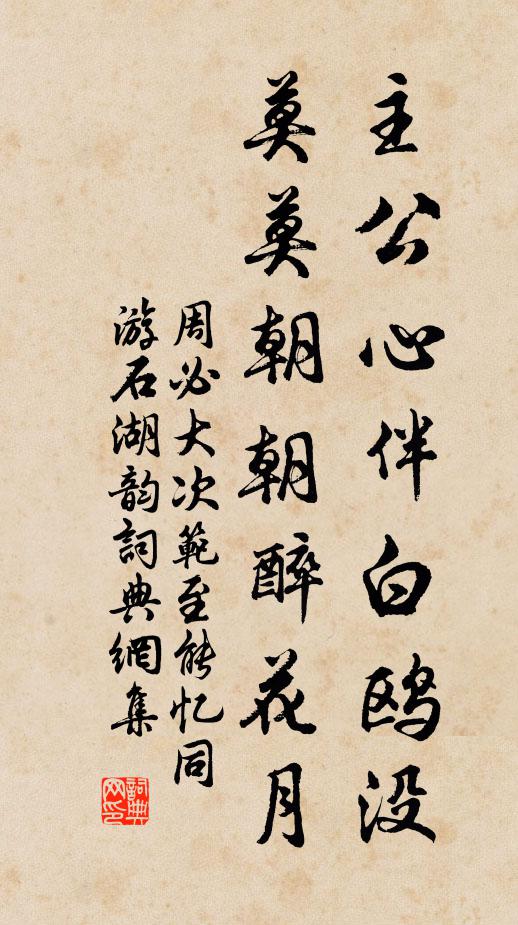 主公心伴白鸥没
莫莫朝朝醉花月
周必大次範至能忆同
游石湖韵詞典網集
詞典网印